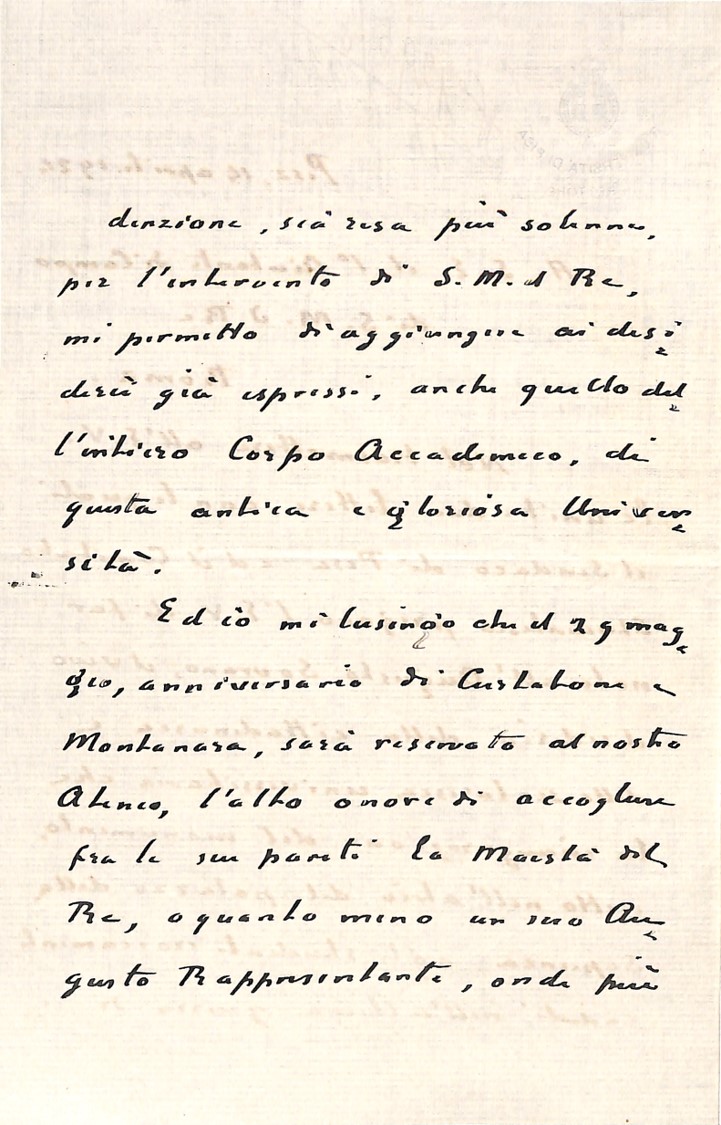 denzione, sia resa più solenne,
per l'intervento di S. M. il Re,
mi permetto di aggiungere ai desi
derii già espressi, anche quello del
l'intiero Corpo Accademico, di
questa antica e gloriosa Univer
sità.
Ed io mi lusingo che il 29 mag
gio, anniversario di Curtatone e
Montanara, sarà riservato al nostro
Ateneo, l'alto onore di accogliere
fra le sue pareti la Maestà del
Re, o quanto meno un suo Au
gusto Rappresentante, onde più